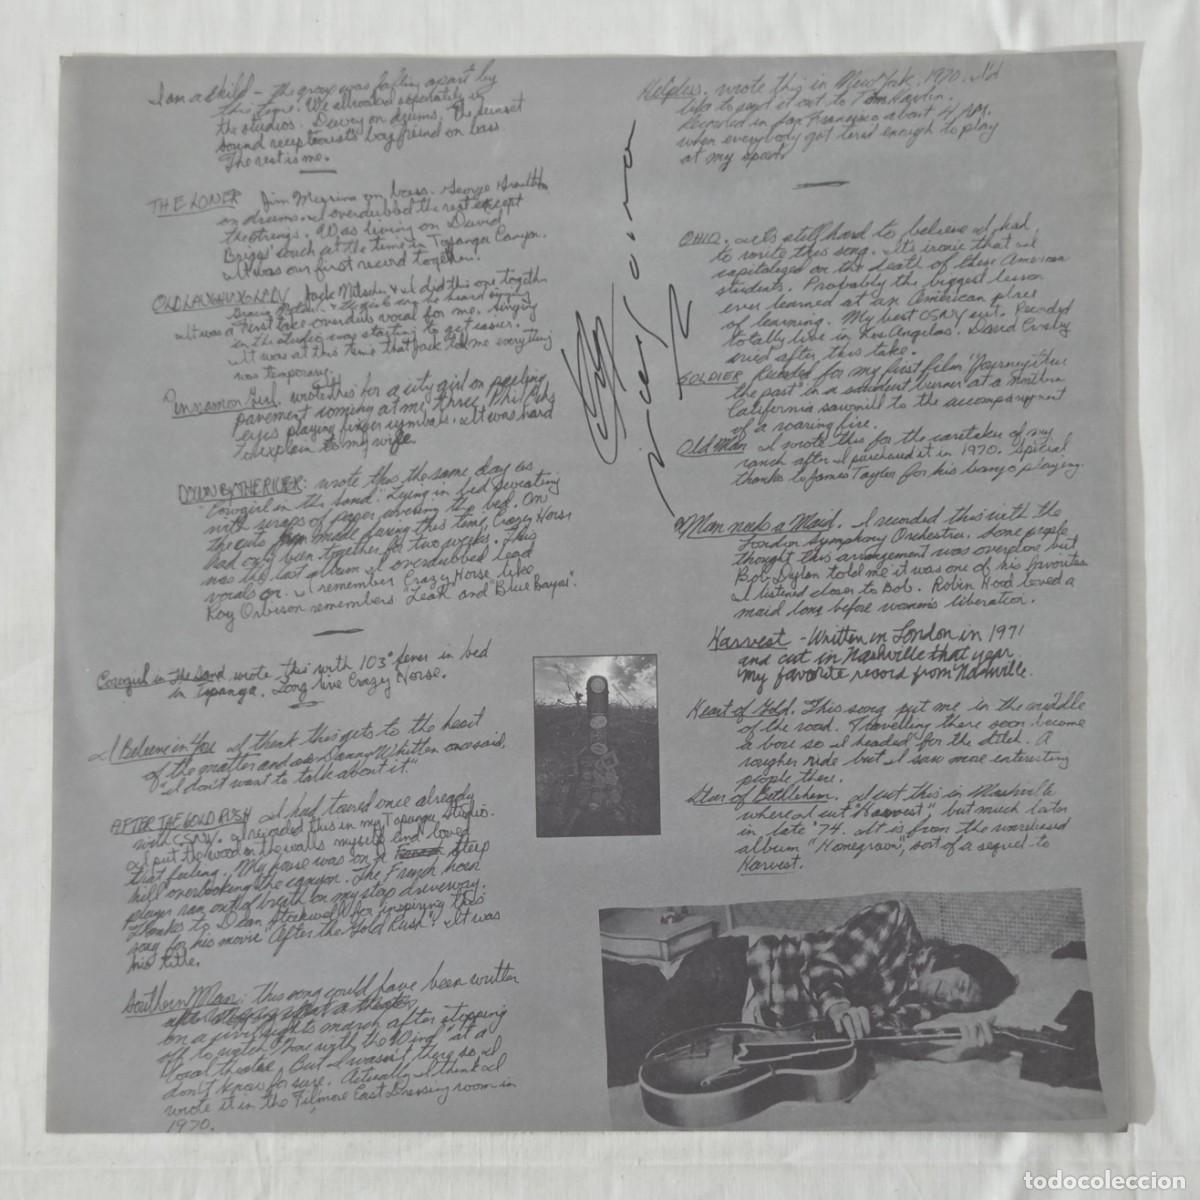 I am a child - the group was falling apart by
this time. We all worked separately in
the studios. Dewey on drums, the sunset
sound receptionists boy friend on bass.
The rest is me.
THE LONER Jim Messina on bass. George Grantham
on drums. I overdubbed the rest except
the strings. Was living on David
Briggs' couch at the time in Topanga Canyon.
It was our first record together.
OLD LAUGHING LADY Jack Nitsche & I did this one together
It was a first take overdub vocal for me. singing
in the studio was starting to get easier.
It was at this time that Jack told me everything
was temporary.
Cinnamon Girl. wrote this for a city girl on peeling
pavement coming at me thru Phil Ochs
eyes playing finger cymbals. It was hard
to explain to my wife.
DOWN BY THE RIVER: wrote this the same day as
Cowgirl in the Sand. Lying in bed sweating
with scraps of paper covering the bed. On
the cuts from made during this time, Crazy Horse
had only been together for two weeks. This
was the last album I overdubbed lead
vocals on. I remember Crazy Horse like
Roy Orbison remembers "Leah" and "Blue Bayou".
Cowgirl in The Sand wrote this with 103° fever in bed
in Topanga. Long live Crazy Horse.
I Believe in You I think this gets to the heart
of the matter and as Danny Whitten once said,
"I don't want to talk about it."
AFTER THE GOLD RUSH I had toured once already
with CSNY. I recorded this in my Topanga Studio.
I put the wood on the walls myself and loved
that feeling. My house was on a steep
hill overlooking the canyon. The French horn
player ran out of breath on my steep driveway.
Thanks to Dean Stockwell for inspiring this
song for his movie "After the Gold Rush". It was
his title.
Southern Man: this song could have been written
on a civil rights march after stopping
off to watch "Gone with the Wind" at a
local theatre. But I wasn't there so I
don't know for sure. Actually I think I
wrote it in the Fillmore East Dressing room in
1970.
Helpless. wrote this in New York. 1970. I'd
like to send it out to
Recorded in San Francisco about 4 AM.
when everybody got tired enough to play
at my speed.
OHIO. It's still hard to believe I had
to write this song. It's ironic that I
capitalized on the death of these American
students. Probably the biggest lesson
ever learned at an American place
of learning. My best CSNY cut. Recorded
totally live in Los Angeles. David Crosby
cried after this take.
SOLDIER Recorded for my first film "Journey thru
the past" in a sawdust burner at a northern
California sawmill to the accompanyment
of a roaring fire.
Old Man I wrote this for the caretaker of my
ranch after I purchased it in 1970. Special
thanks to James Taylor for his banjo playing.
A Man needs a Maid. I recorded this with the
London Symphony Orchestra. Some people
thought this arrangement was overdone but
Bob Dylan told me it was one of his favorites.
I listened closer to Bob. Robin Hood loved a
maid long before women's liberation.
Harvest - Written in London in 1971
and cut in Nashville that year
my favorite record from Nashville.
Heart of Gold. This song put me in the middle
of the road. Travelling there soon became
a bore so I headed for the ditch. A
rougher ride but I saw more interesting
people there.
Star of Bethlehem. I cut this in Nashville
where I cut "Harvest", but much later
in late '74. It is from the unreleased
album "Homegrown", sort of a sequel to
Harvest.
todocoleccion